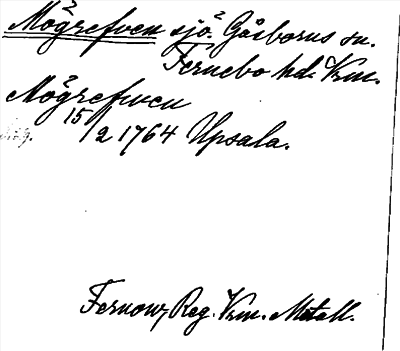 Mögrefven sjö. Gåsborns sn.
Fernebo hd. Vrm.
Mögrefwen
15/2 1764 Upsala.
Fernow, Reg. Vrm. Metall.